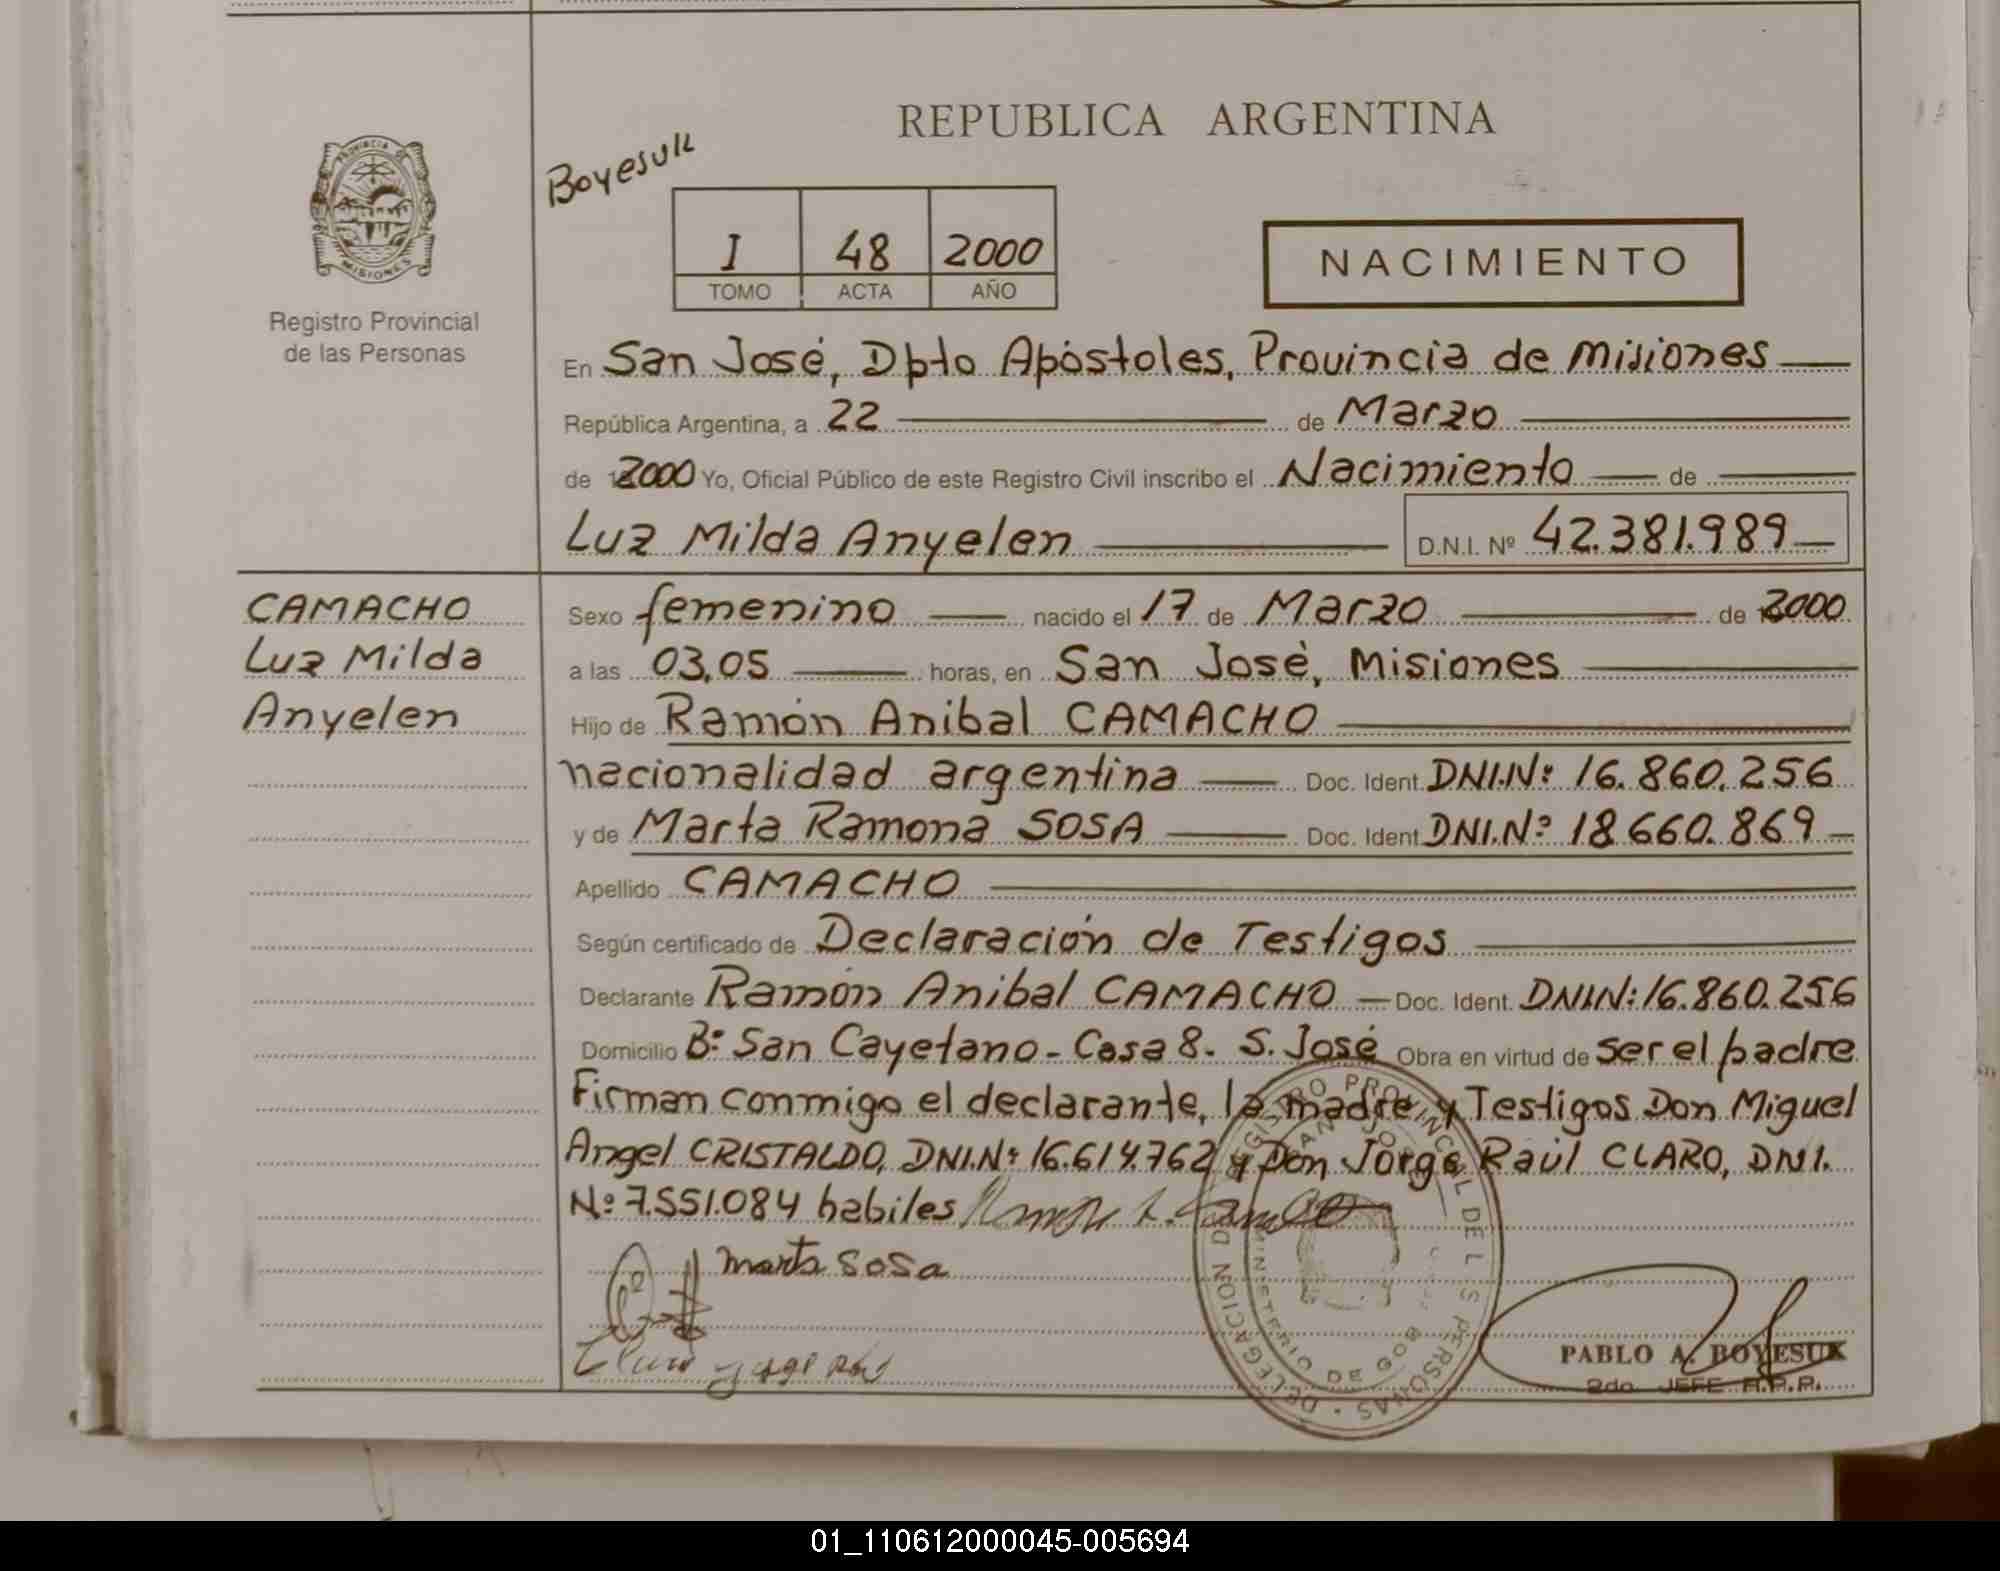 REPUBLICA ARGENTINA
Boyesuk
PROVINCIA DE
MISIONES
Registro Provincial
de las Personas
I 48 2000
TOMO ACTA AÑO
NACIMIENTO
En San José, Dpto Apóstoles, Provincia de Misiones
República Argentina, a 22 de Marzo
de 2000 Yo, Oficial Público de este Registro Civil inscribo el Nacimiento de
Luz Milda Anyelen D.N.I. Nº 42.381.989
CAMACHO
Luz Milda
Anyelen
Sexo femenino nacido el 17 de Marzo de 2000
a las 03,05 horas, en San José, Misiones
Hijo de Ramón Anibal CAMACHO
nacionalidad argentina Doc. Ident. DNI.Nº 16.860.256
y de Marta Ramona SOSA Doc. Ident. DNI.Nº 18.660.869
Apellido CAMACHO
Según certificado de Declaración de Testigos
Declarante Ramón Anibal CAMACHO Doc. Ident. DNI.N: 16.860.256
Domicilio Bº San Cayetano - Casa 8 - S. José Obra en virtud de ser el padre
Firman conmigo el declarante, la madre y Testigos Don Miguel
Angel CRISTALDO, DNI.Nº 16.614.762 y Don Jorge Raúl CLARO, DNI.
Nº 7.551.084 habiles
Marta Sosa
REGISTRO PROVINCIAL DE LAS PERSONAS · DELEGACION
MINISTERIO DE GOB
PABLO A. BOYESUK
2do. JEFE R.P.P.
01_110612000045-005694